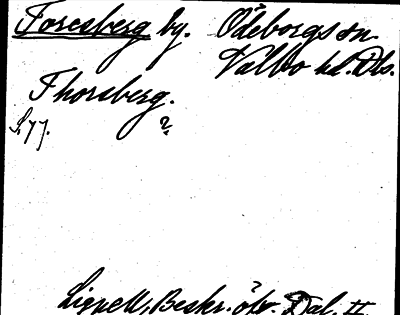 Toresberg by. Ödeborgs sn.
Valbo hd. Dls.
Thorsberg.
S. 77. ?
Lignell, Beskr. öfv. Dal. II